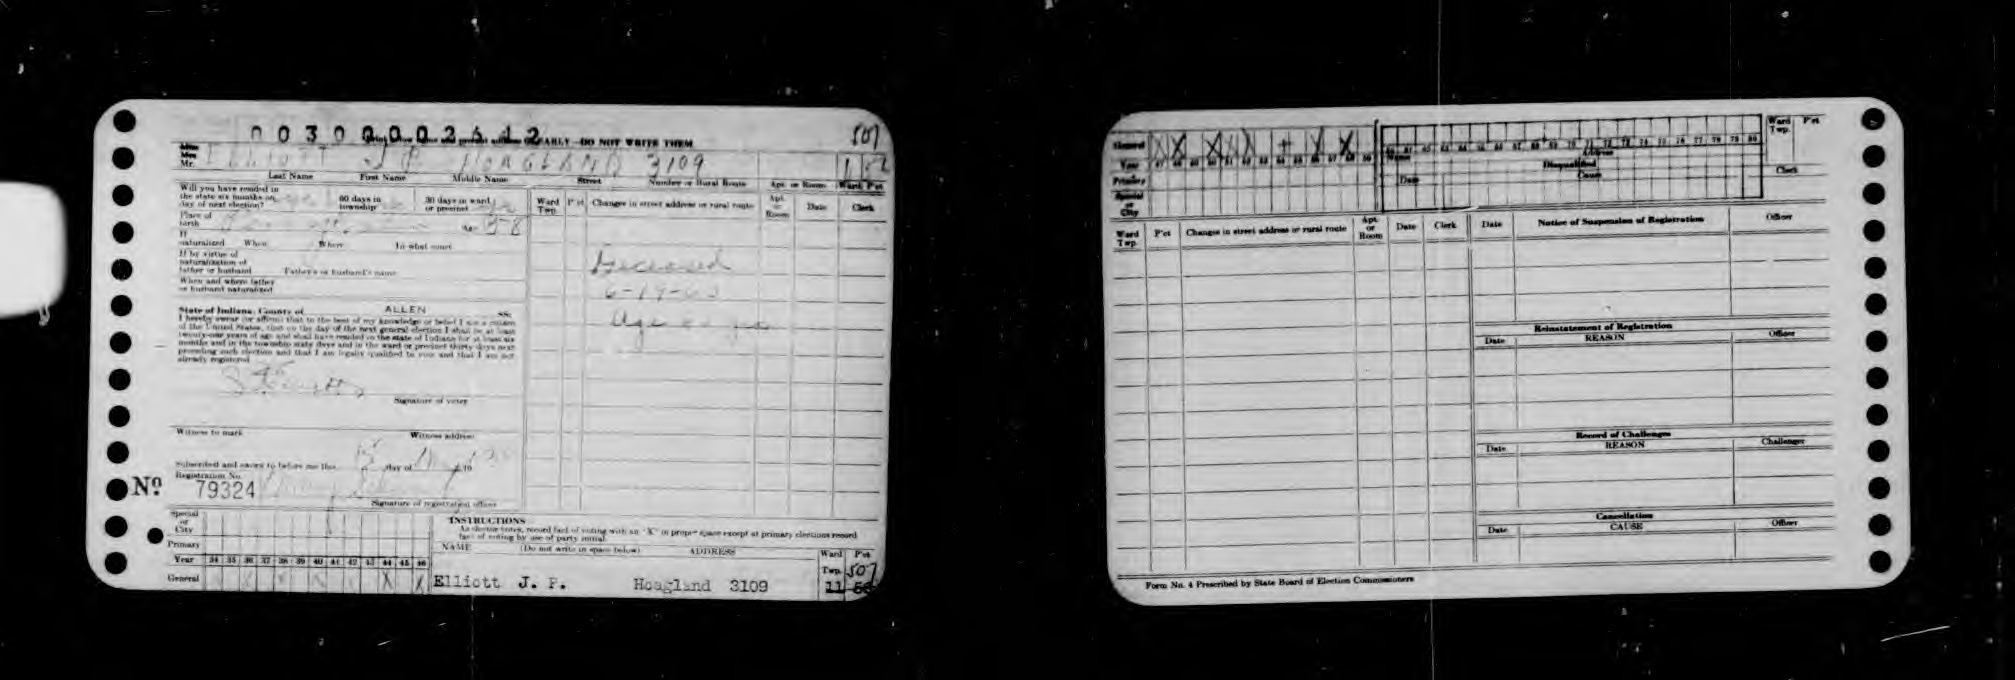 00300002642
EARLY—DO NOT WRITE THEM
507
Mr. ELLIOTT J P HOAGLAND 3109
Last Name First Name Middle Name Street Number or Rural Route Apt. or Room Ward P'ct
Will you have resided in the state six months on day of next election? 60 days in township 30 days in ward or precinct
Place of birth Age 58
If naturalized When Where In what court
If by virtue of naturalization of father or husband Father's or husband's name
When and where father or husband naturalized
Ward Twp. P'ct Changes in street address or rural route Apt. or Room Date Clerk
Deceased
Age
State of Indiana, County of ALLEN SS:
I hereby swear (or affirm) that to the best of my knowledge or belief I am a citizen
of the United States, that on the day of the next general election I shall be at least
twenty-one years of age and shall have resided in the state of Indiana for at least six
months and in the township sixty days and in the ward or precinct thirty days next
preceding such election and that I am legally qualified to vote and that I am not
already registered
Signature of voter
Witness to mark Witness address
Subscribed and sworn to before me this day of
Registration No.
Nº 79324
Signature of registration officer
Special or City
Primary
Year 34 35 36 37 38 39 40 41 42 43 44 45 46
General X X
INSTRUCTIONS
As elector votes, record fact of voting with an "X" in proper space except at primary elections record
fact of voting by use of party initial.
NAME (Do not write in space below) ADDRESS Ward Twp. P'ct
507
Elliott J. P. Hoagland 3109 11
General X X
Year
Primary
Special or City
Name Address
Disqualified
Date Cause
Ward Twp. P'ct
Clerk
Ward Twp. P'ct Changes in street address or rural route Apt. or Room Date Clerk
Date Notice of Suspension of Registration Officer
Reinstatement of Registration
Date REASON Officer
Record of Challenges
Date REASON Challenger
Cancellation
Date CAUSE Officer
Form No. 4 Prescribed by State Board of Election Commissioners